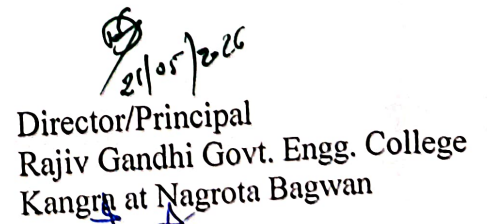 21/05/2026
Director/Principal
Rajiv Gandhi Govt. Engg. College
Kangra at Nagrota Bagwan